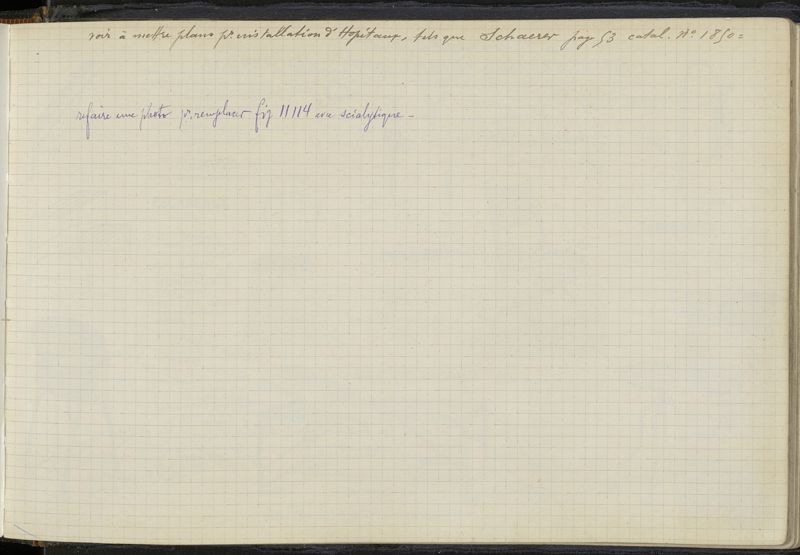 voir à mettre plans pr. installation d'Hopitaux, tels que Schaerer pag 53 catal. No 1850=
refaire une photo pr. remplacer fig 11114 scialytique -